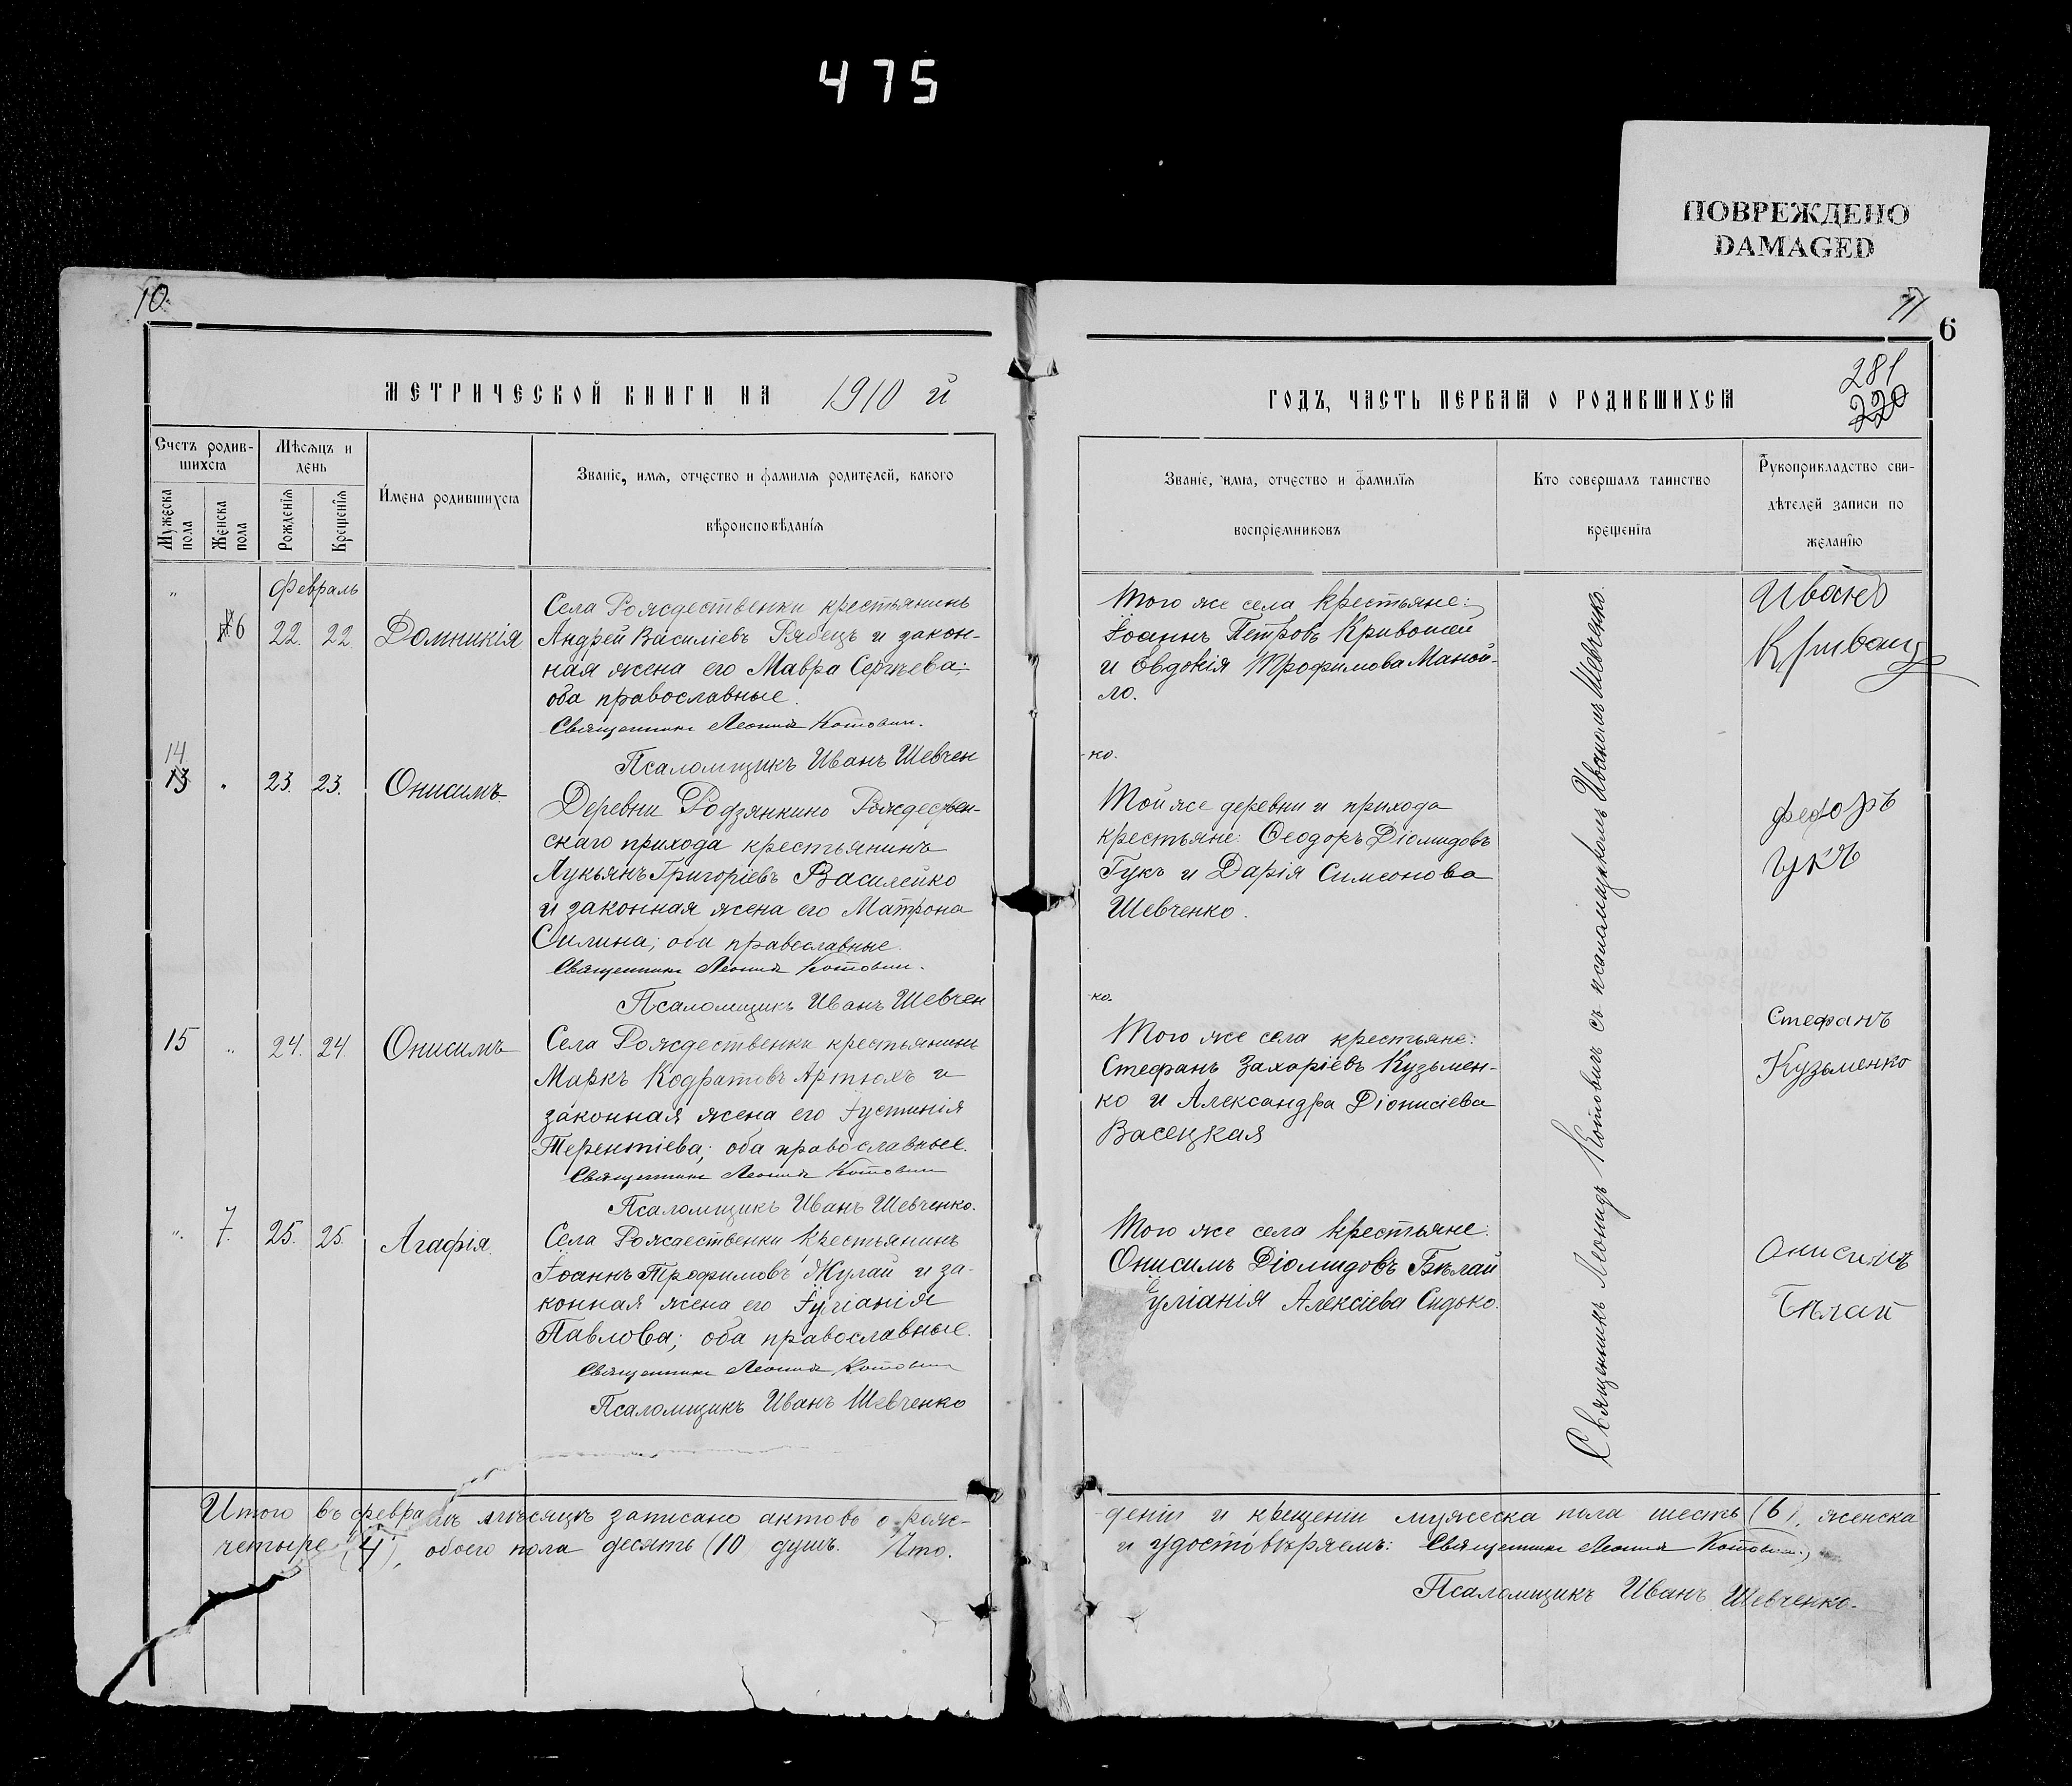 475
ПОВРЕЖДЕНО
DAMAGED
10.
МЕТРИЧЕСКОЙ КНИГИ НА 1910 й
Счетъ родив-
шихся
Мѣсяцъ и
день
Мужеска
пола
Женска
пола
Рожденія
Крещенія
Имена родившихся
Званіе, имя, отчество и фамилія родителей, какого
вѣроисповѣданія
Февраль
" 6 22. 22 Домникія
Села Рождественки крестьянинъ
Андрей Василіевъ Рябецъ и закон-
ная жена его Мавра Сергѣева;
оба православные.
Священникъ Леонидъ Котовичъ.
Псаломщикъ Иванъ Шевчен
14
13 " 23. 23. Онисимъ
Деревни Родзянкино Рождествен-
скаго прихода крестьянинъ
Лукьянъ Григоріевъ Василейко
и законная жена его Матрона
Силина; оба православные.
Священникъ Леонидъ Котовичъ.
Псаломщикъ Иванъ Шевчен
15 " 24. 24. Онисимъ
Села Рождественки крестьянинъ
Маркъ Кодратовъ Артюхъ и
законная жена его Іустинія
Терентіева; оба православные.
Священникъ Леонидъ Котовичъ
Псаломщикъ Иванъ Шевченко.
" 7. 25. 25. Агафія.
Села Рождественки крестьянинъ
Іоаннъ Трофимовъ Жулай и за-
конная жена его Іуліанія
Павлова; оба православные.
Священникъ Леонидъ Котовичъ
Псаломщикъ Иванъ Шевченко
Итого въ февралѣ мѣсяцѣ записано актовъ о рож-
четыре (4), обоего пола десять (10 душъ. Что.
11
6
281
220
ГОДЪ, ЧАСТЬ ПЕРВАЯ О РОДИВШИХСЯ
Званіе, имя, отчество и фамилія
воспріемниковъ
Кто совершалъ таинство
крещенія
Рукоприкладство сви-
дѣтелей записи по
желанію
Того же села крестьяне:
Іоаннъ Петровъ Кривошей
и Евдокія Трофимова Маной-
ло.
-ко.
Иванъ
Той же деревни и прихода
крестьяне: Ѳеодоръ Діомидовъ
Гукъ и Дарія Симеонова
Шевченко.
-ко.
Федоръ
гукъ
Того же села крестьяне:
Стефанъ Захаріевъ Кузьмен-
ко и Александра Діонисіева
Васецкая
Стефанъ
Кузьменко
Того же села крестьяне:
Онисимъ Діомидовъ Бѣлай
Іуліанія Алексіева Сидько.
Онисимъ
Бѣлай
Священникъ Леонидъ Котовичъ съ псаломщикомъ Иваномъ Шевченко.
деніи и крещеніи мужеска пола шесть (6), женска
и удостовѣряемъ: Священникъ Леонидъ Котовичъ.
Псаломщикъ Иванъ Шевченко.